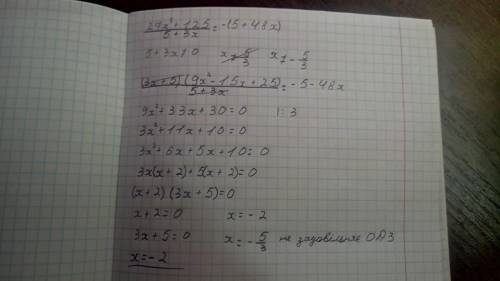 29x³+125 / 5+3x = -(5+48x)
5+3x≠0 x≠5/3 x≠-5/3
(3x+5)(9x²-15x+25) / 5+3x = -5-48x
9x²+33x+30=0 |:3
3x²+11x+10=0
3x²+6x+5x+10=0
3x(x+2)+5(x+2)=0
(x+2)(3x+5)=0
x+2=0 x=-2
3x+5=0 x=-5/3 не задовільняє ОДЗ
x=-2